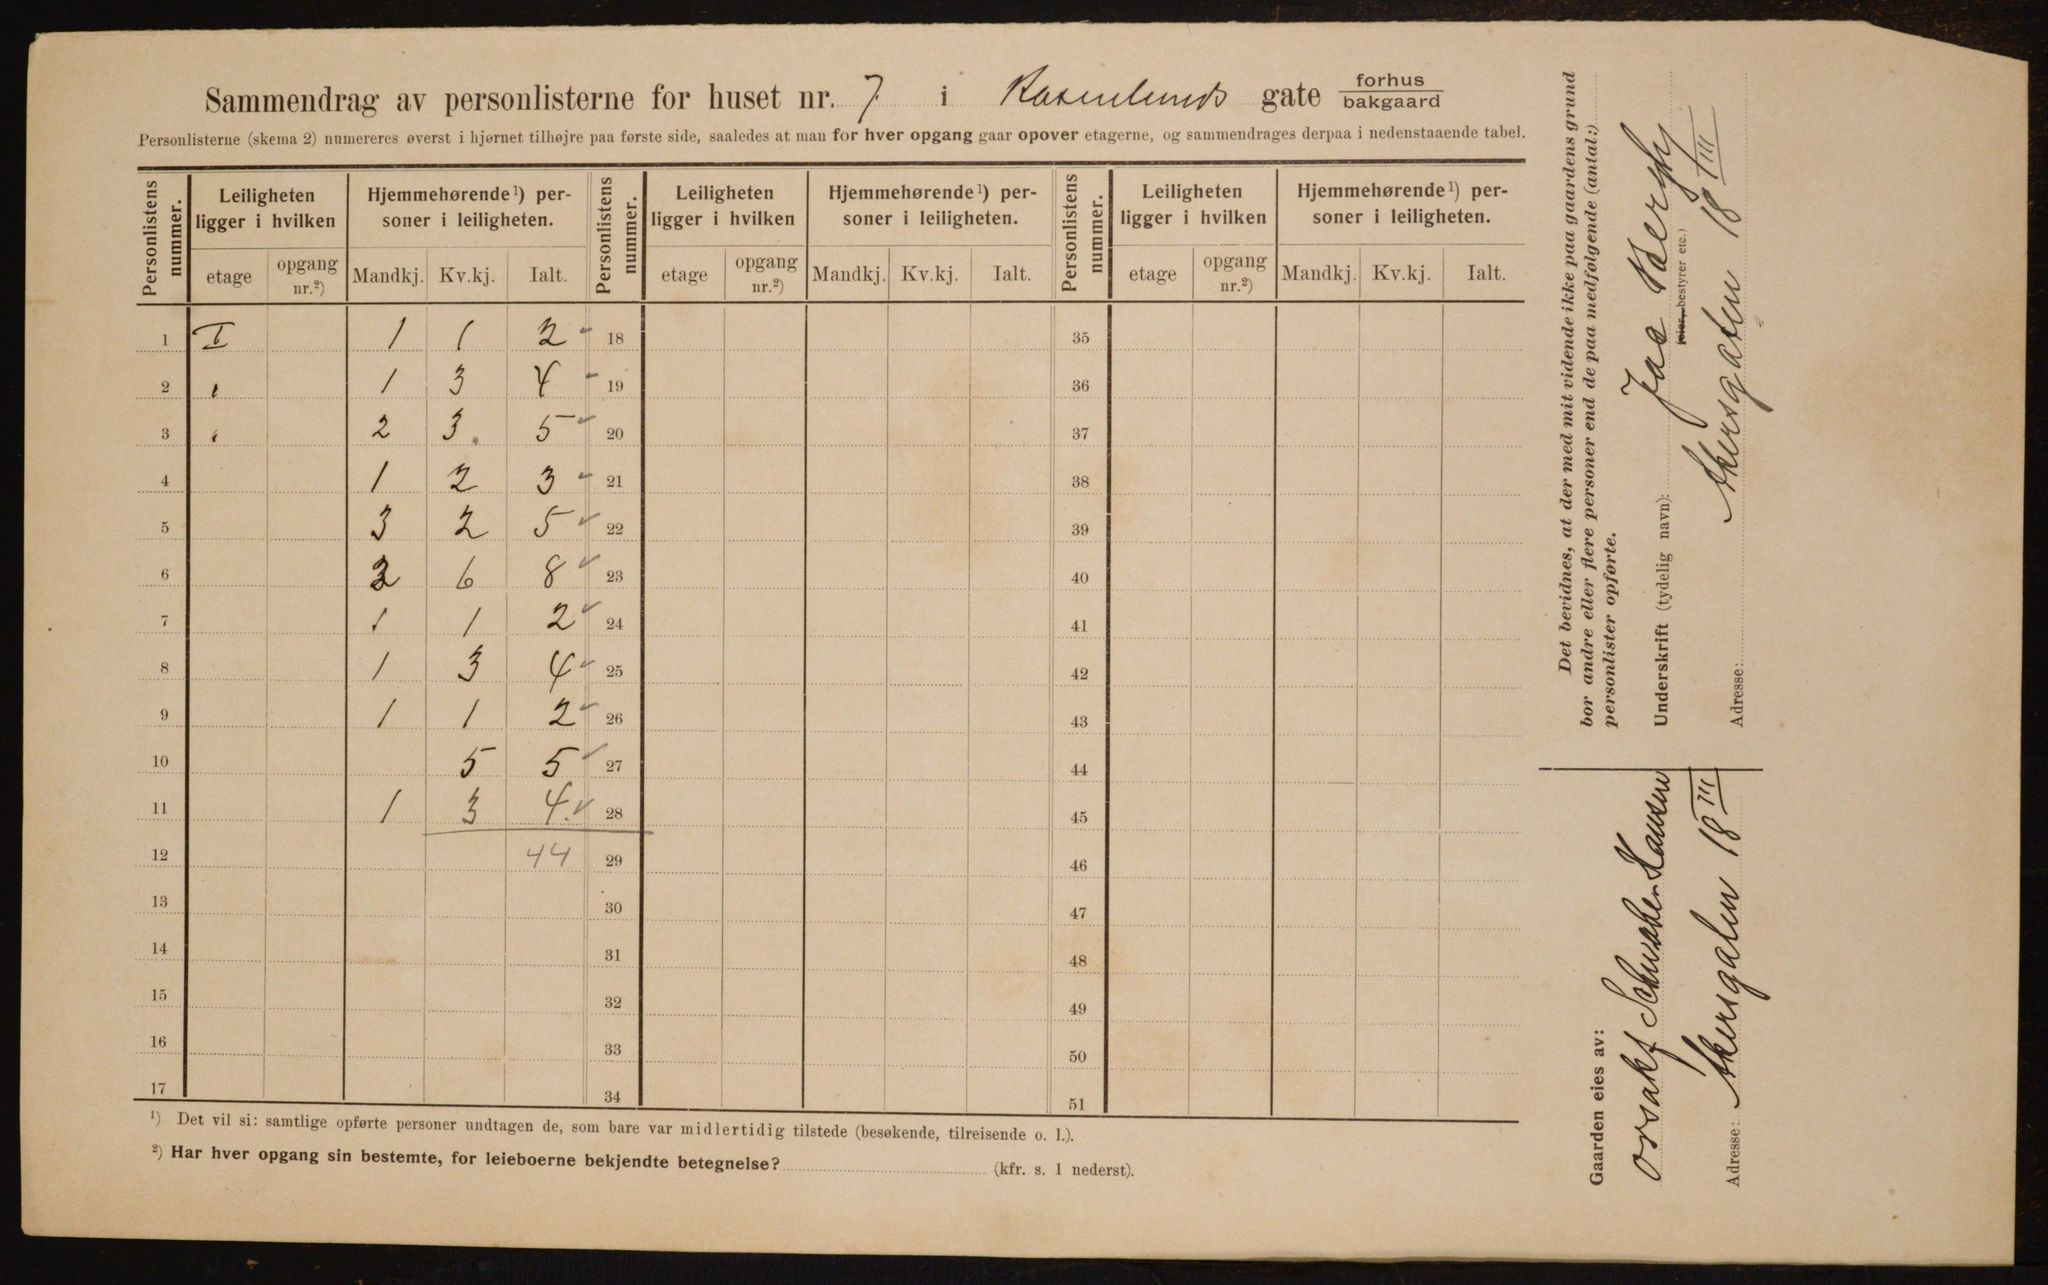 Sammendrag av personlisterne for huset nr. 7. i Rosenlunds gate forhus
bakgaard
Personlisterne (skema 2) numereres øverst i hjørnet tilhøjre paa første side, saaledes at man for hver opgang gaar opover etagerne, og sammendrages derpaa i nedenstaaende tabel.
Personlistens nummer. Leiligheten ligger i hvilken Hjemmehørende ¹) personer i leiligheten. Personlistens nummer. Leiligheten ligger i hvilken Hjemmehørende ¹) personer i leiligheten. Personlistens nummer. Leiligheten ligger i hvilken Hjemmehørende ¹) personer i leiligheten.
etage opgang nr.²) Mandkj. Kv.kj. Ialt. etage opgang nr.²) Mandkj. Kv.kj. Ialt. etage opgang nr.²) Mandkj. Kv.kj. Ialt.
1 I 1 1 2 18 35
2 " 1 3 4 19 36
3 " 2 3. 5 20 37
4 1 2 3 21 38
5 3 2 5 22 39
6 2 6 8 23 40
7 1 1 2 24 41
8 1 3 4 25 42
9 1 1 2 26 43
10 5 5 27 44
11 1 3 4. 28 45
12 44 29 46
13 30 47
14 31 48
15 32 49
16 33 50
17 34 51
¹) Det vil si: samtlige opførte personer undtagen de, som bare var midlertidig tilstede (besøkende, tilreisende o. l.).
²) Har hver opgang sin bestemte, for leieboerne bekjendte betegnelse? (kfr. s. 1 nederst).
Det bevidnes, at der med mit vidende ikke paa gaardens grund
bor andre eller flere personer end de paa medfølgende (antal:)
personlister opførte.
Underskrift (tydelig navn):
(eier, bestyrer etc.)
Adresse: Akersgaten 18 III
Gaarden eies av:
Hansen
Adresse: Akersgaten 18 III